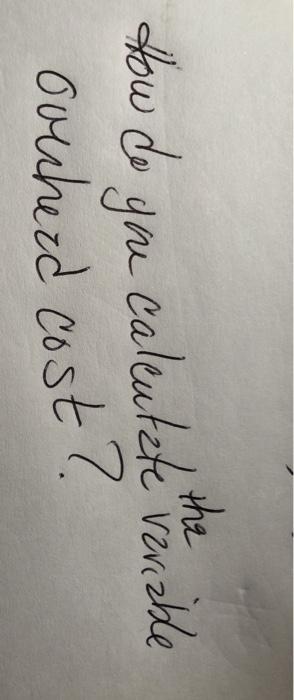 How do you calculate the variable
overhead cost?